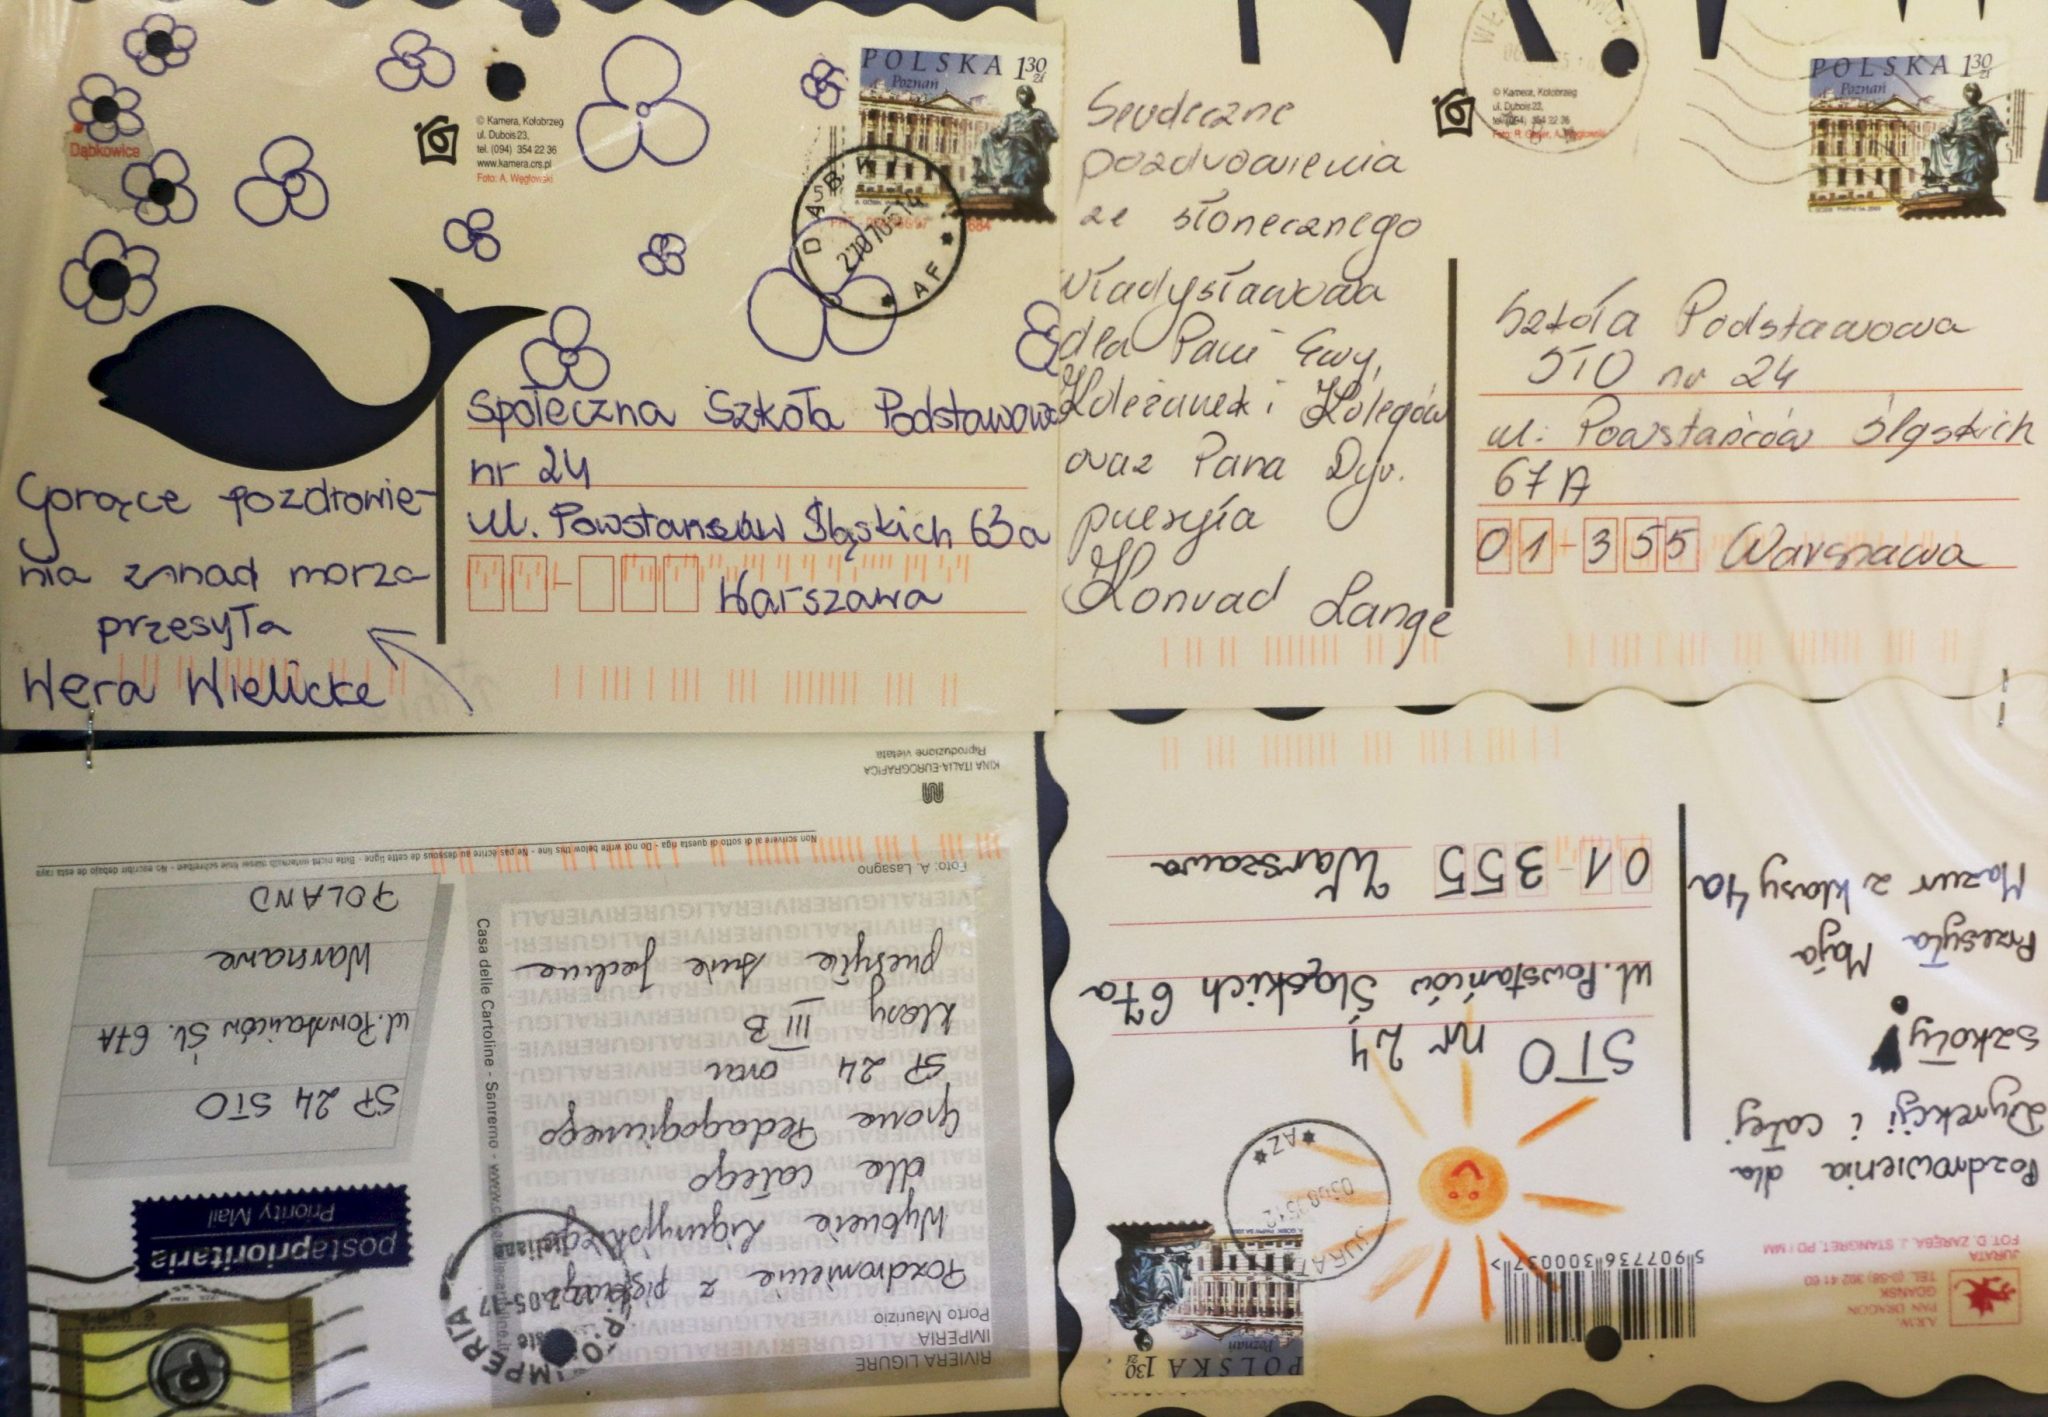 Dąbkowice
© Kamera, Kołobrzeg
ul. Dubois 23,
tel. (094) 354 22 36
www.kamera.crs.pl
Foto: A. Węgłowski
POLSKA 1 30 zł
Poznań
Społeczna Szkoła Podstawowa
nr 24
ul. Powstańców Śląskich 63a
Warszawa
Gorące pozdrowie-
nia znad morza
przesyła
Wera Wielicke
© Kamera, Kołobrzeg
ul. Dubois 22,
tel. (094) 354 22 36
POLSKA 1 30 zł
Poznań
Serdeczne
pozdrowienia
ze słonecznego
Władysławowa
dla Pani Ewy,
Koleżanek i Kolegów
oraz Pana Dyr.
przesyła
Konrad Lange
Szkoła Podstawowa
STO nr 24
ul. Powstańców Śląskich
67A
01-355 Warszawa
RIVIERA LIGURE
IMPERIA
Porto Maurizio
Pozdrowienia z pięknego
Wybrzeża Liguryjskiego
dla całego
Grona Pedagogicznego
SP 24 oraz
klasy III B
przesyła
Foto: A. Lasagno
Casa delle Cartoline - Sanremo
postaprioritaria
Priority Mail
IMPERIA
SP 24 STO
ul. Powstańców Śl. 67A
Warszawa
POLAND
Non scrivere al di sotto di questa riga - Do not write below this line - Ne pas écrire au dessous de cette ligne
KINA ITALIA-EUROGRAFICA
Riproduzione vietata
A.R.W.
PAN DRAGON
GDAŃSK
TEL. (0-58) 302 41 60
JURATA
FOT. D. ZARĘBA, J. STANGRET, PD / MM
5 907736 300037 >
POLSKA 1 30 zł
Poznań
JURATA
Pozdrowienia dla
Dyrekcji i całej
szkoły!
Przesyła Maja
Mazur z klasy 4a
STO nr 24
ul. Powstańców Śląskich 67a
01-355 Warszawa